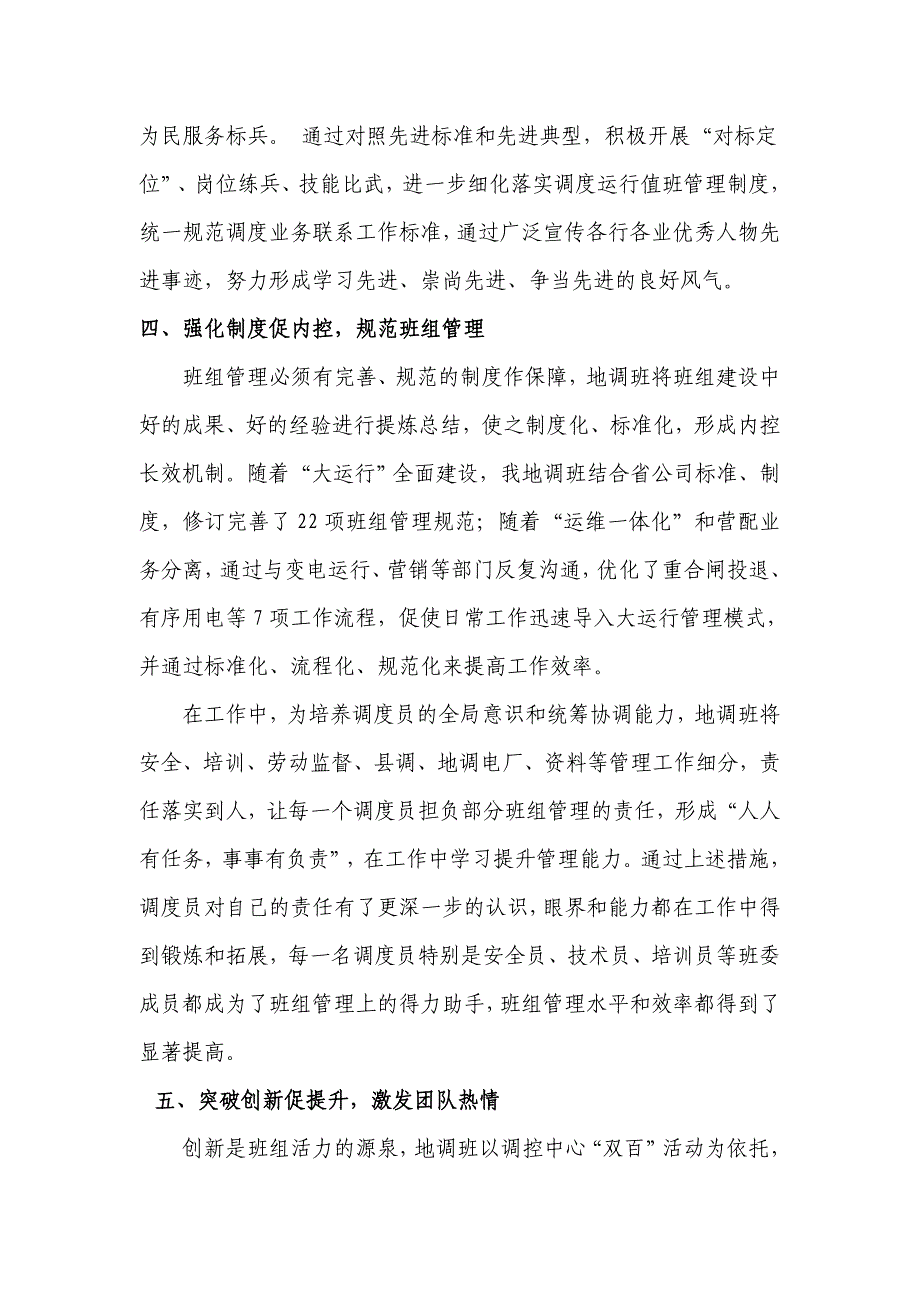 为民服务标兵。 通过对照先进标准和先进典型，积极开展“对标定
位”、岗位练兵、技能比武，进一步细化落实调度运行值班管理制度，
统一规范调度业务联系工作标准，通过广泛宣传各行各业优秀人物先
进事迹，努力形成学习先进、崇尚先进、争当先进的良好风气。
四、强化制度促内控，规范班组管理
班组管理必须有完善、规范的制度作保障，地调班将班组建设中
好的成果、好的经验进行提炼总结，使之制度化、标准化，形成内控
长效机制。随着“大运行”全面建设，我地调班结合省公司标准、制
度，修订完善了 22 项班组管理规范；随着“运维一体化”和营配业
务分离，通过与变电运行、营销等部门反复沟通，优化了重合闸投退、
有序用电等 7 项工作流程，促使日常工作迅速导入大运行管理模式，
并通过标准化、流程化、规范化来提高工作效率。
在工作中，为培养调度员的全局意识和统筹协调能力，地调班将
安全、培训、劳动监督、县调、地调电厂、资料等管理工作细分，责
任落实到人，让每一个调度员担负部分班组管理的责任，形成“人人
有任务，事事有负责”，在工作中学习提升管理能力。通过上述措施，
调度员对自己的责任有了更深一步的认识，眼界和能力都在工作中得
到锻炼和拓展，每一名调度员特别是安全员、技术员、培训员等班委
成员都成为了班组管理上的得力助手，班组管理水平和效率都得到了
显著提高。
五、突破创新促提升，激发团队热情
创新是班组活力的源泉，地调班以调控中心“双百”活动为依托，